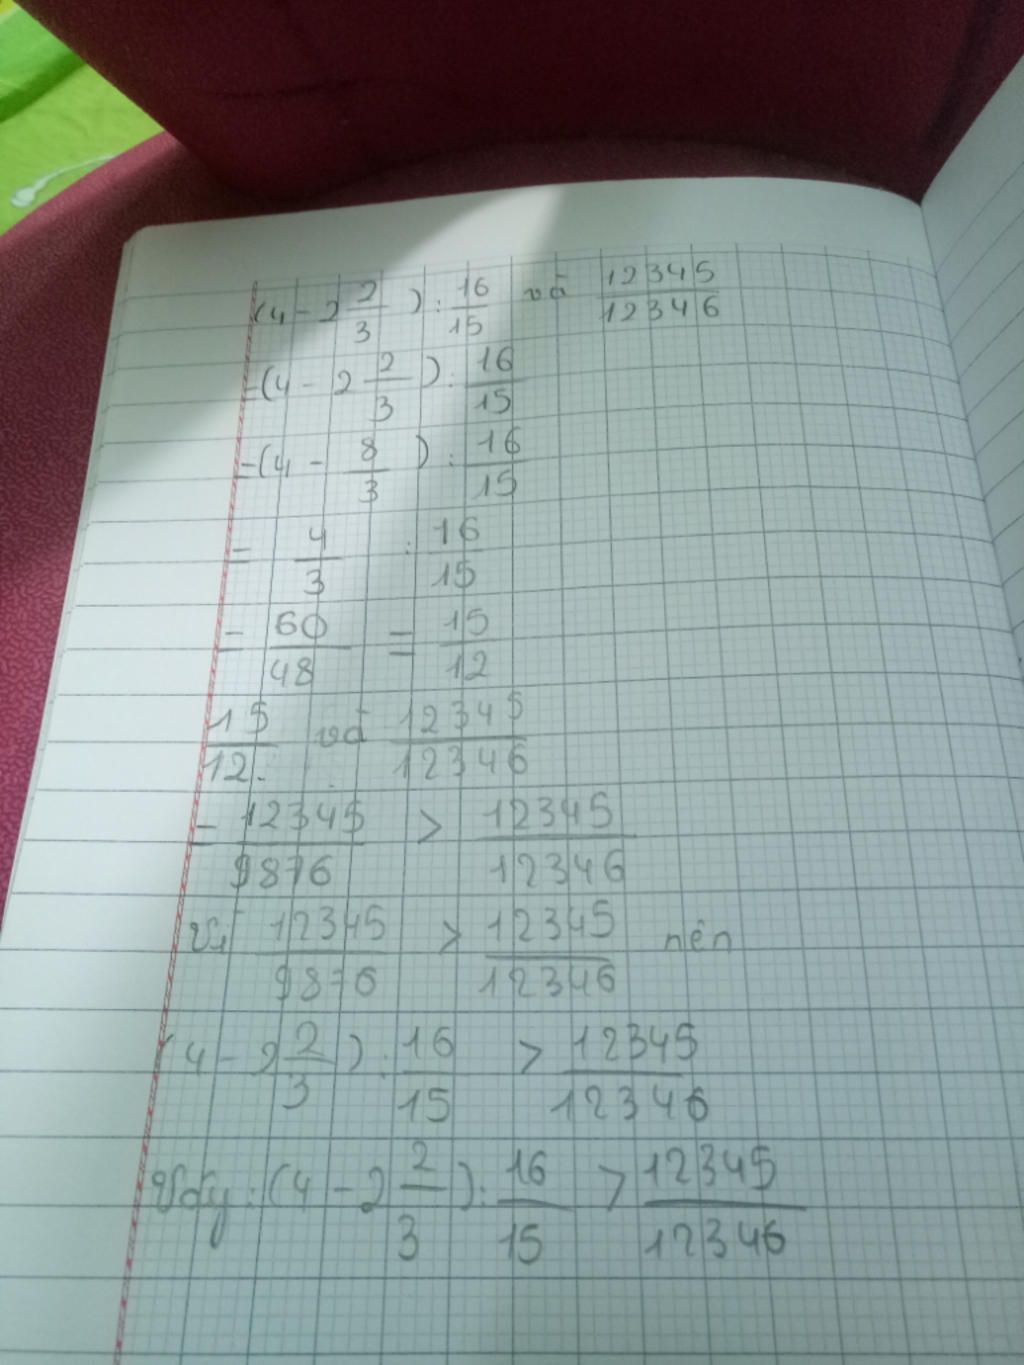 (4 - 2 2/3) : 16/15 và 12345/12346
= (4 - 2 2/3) : 16/15
= (4 - 8/3) : 16/15
= 4/3 : 16/15
= 60/48 = 15/12
15/12 và 12345/12346
= 12345/9876 > 12345/12346
Vì 12345/9876 > 12345/12346 nên
(4 - 2 2/3) : 16/15 > 12345/12346
Vậy : (4 - 2 2/3) : 16/15 > 12345/12346